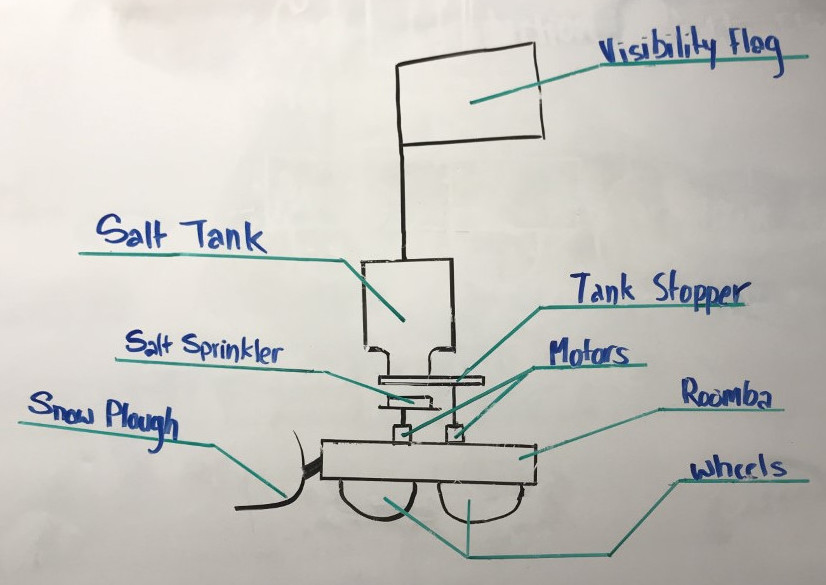 Visibility Flag
Salt Tank
Tank Stopper
Salt Sprinkler
Motors
Roomba
Snow Plough
wheels